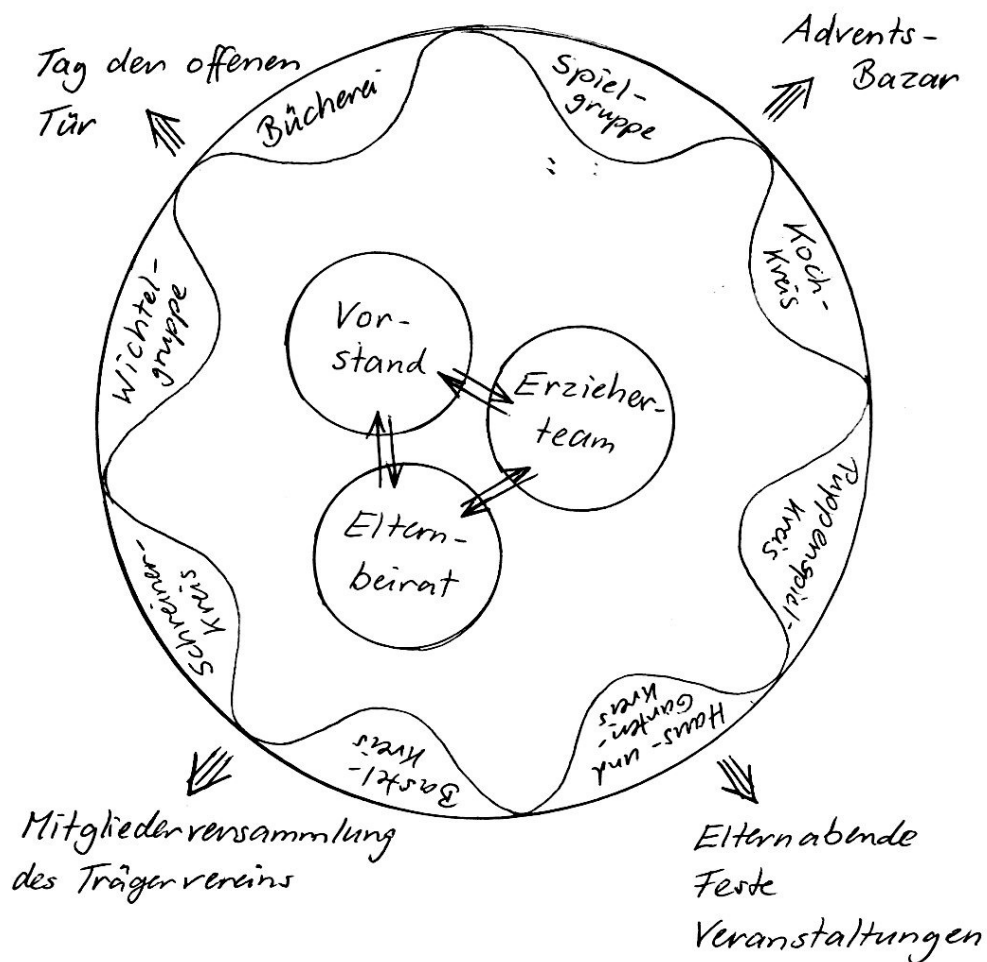 Tag der offenen
Tür
Advents-
Bazar
Bücherei
Spiel-
gruppe
Koch-
Kreis
Puppenspiel-
Kreis
Haus- und
Garten-
Kreis
Bastel-
Kreis
Schreiner-
Kreis
Wichtel-
gruppe
Vor-
stand
Erzieher-
team
Eltern-
beirat
Mitgliederversammlung
des Trägervereins
Elternabende
Feste
Veranstaltungen